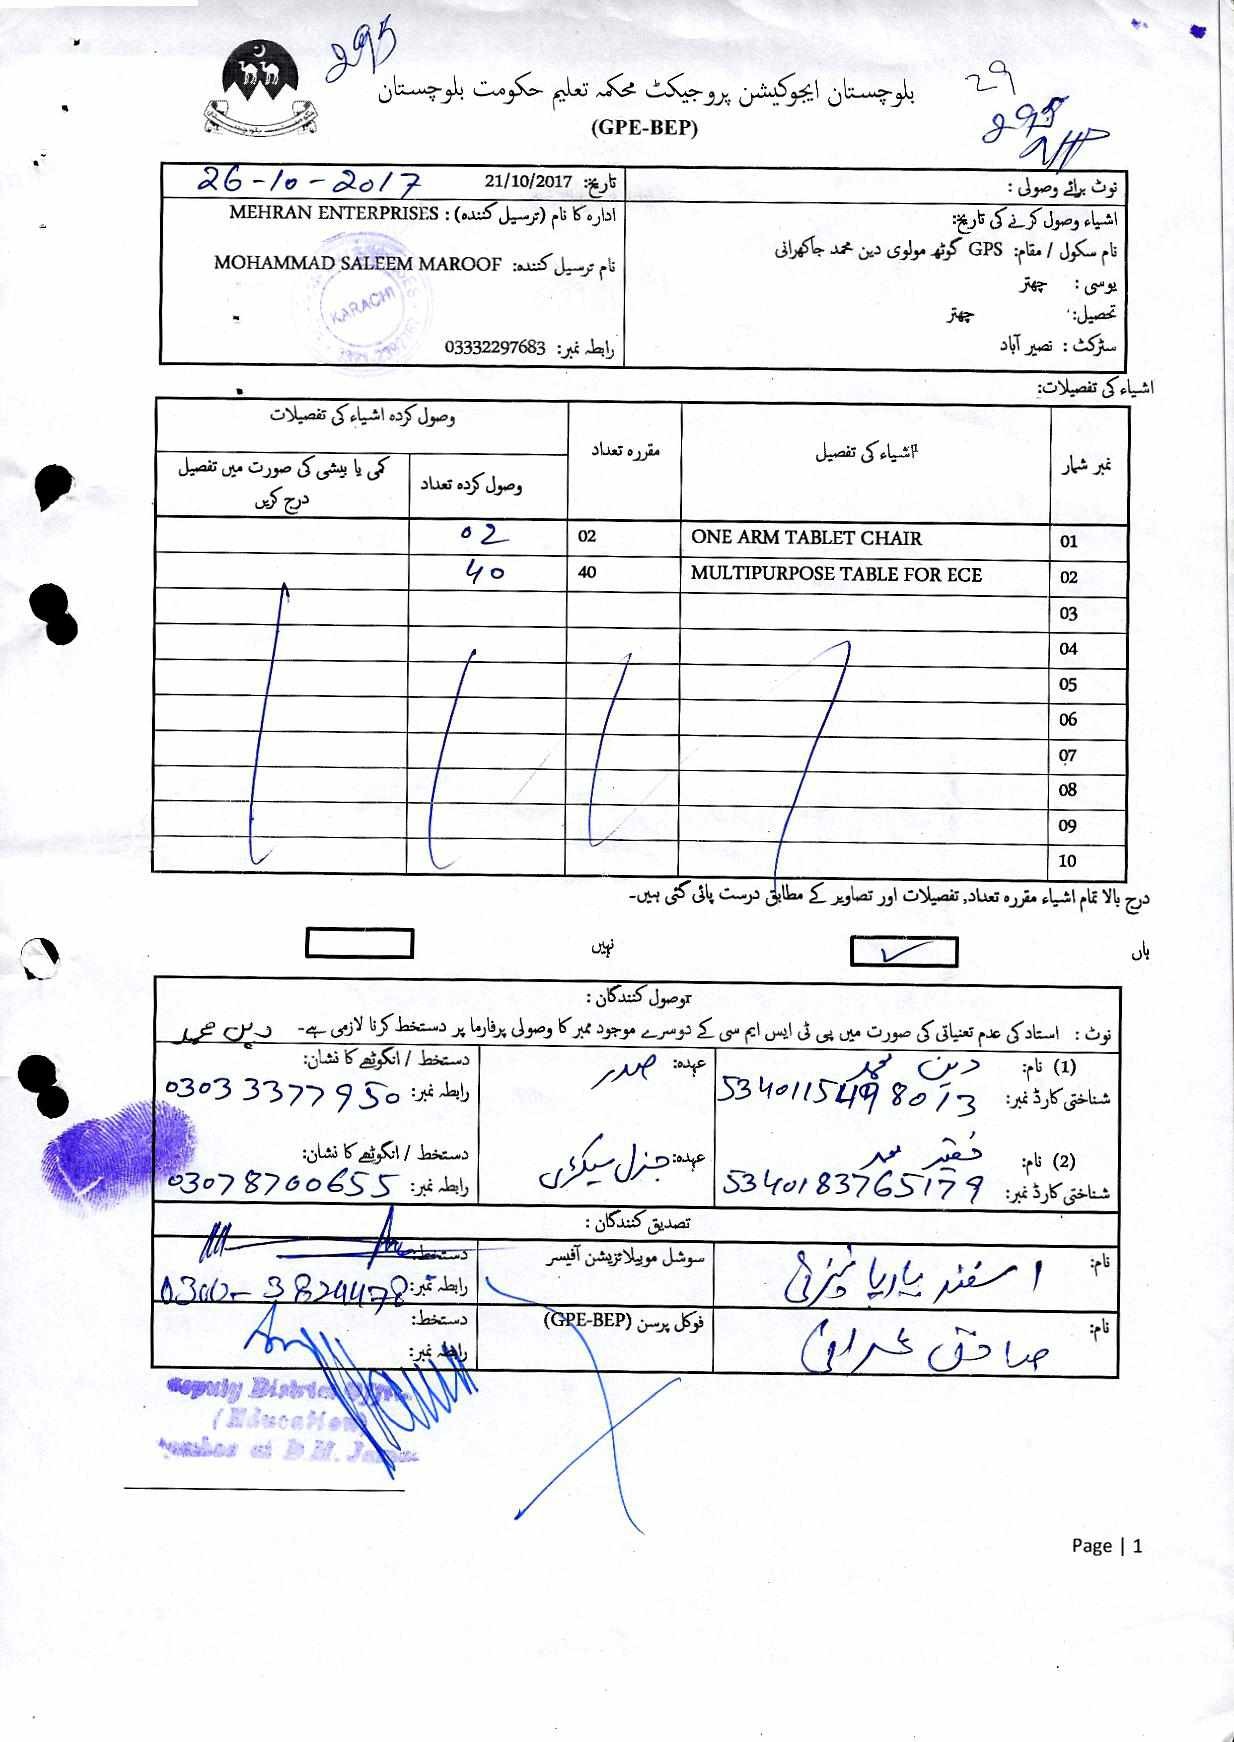 295
بلوچستان ایجوکیشن پروجیکٹ محکمہ تعلیم حکومت بلوچستان
29
(GPE-BEP)
نوٹ برائے وصولی :
تاریخ: 21/10/2017 26-10-2017
اشیاء وصول کرنے کی تاریخ:
ادارہ کا نام (ترسیل کنندہ) : MEHRAN ENTERPRISES
نام سکول / مقام: GPS گوٹھ مولوی دین محمد جاکھرانی
نام ترسیل کنندہ: MOHAMMAD SALEEM MAROOF
یوسی : چھتر
KARACHI
تحصیل: چھتر
سٹرکٹ : نصیر آباد
رابطہ نمبر: 03332297683
اشیاء کی تفصیلات:
نمبر شمار اشیاء کی تفصیل مقررہ تعداد وصول کردہ اشیاء کی تفصیلات
وصول کردہ تعداد کمی یا بیشی کی صورت میں تفصیل درج کریں
01 ONE ARM TABLET CHAIR 02 02
02 MULTIPURPOSE TABLE FOR ECE 40 40
03
04
05
06
07
08
09
10
درج بالا تمام اشیاء مقررہ تعداد, تفصیلات اور تصاویر کے مطابق درست پائی گئی ہیں۔
ہاں نہیں
توصول کنندگان :
نوٹ : استاد کی عدم تعنیاتی کی صورت میں پی ٹی ایس ایم سی کے دوسرے موجود ممبر کا وصولی پرفارما پر دستخط کرنا لازمی ہے۔ دین محمد
(1) نام: دین محمد عہدہ: صدر دستخط / انگوٹھے کا نشان:
شناختی کارڈ نمبر: 5340115498013 رابطہ نمبر: 03033377950
(2) نام: فقیر محمد عہدہ: جنرل سیکرٹری دستخط / انگوٹھے کا نشان:
شناختی کارڈ نمبر: 5340183765179 رابطہ نمبر: 03078700655
تصدیق کنندگان :
نام: اسفند یار سوشل موبیلائزیشن آفیسر دستخط:
رابطہ نمبر: 0300-3824478
نام: صادق عمرانی فوکل پرسن (GPE-BEP) دستخط:
رابطہ نمبر:
Deputy District
(Education)
at D.M. Jamali
Page | 1